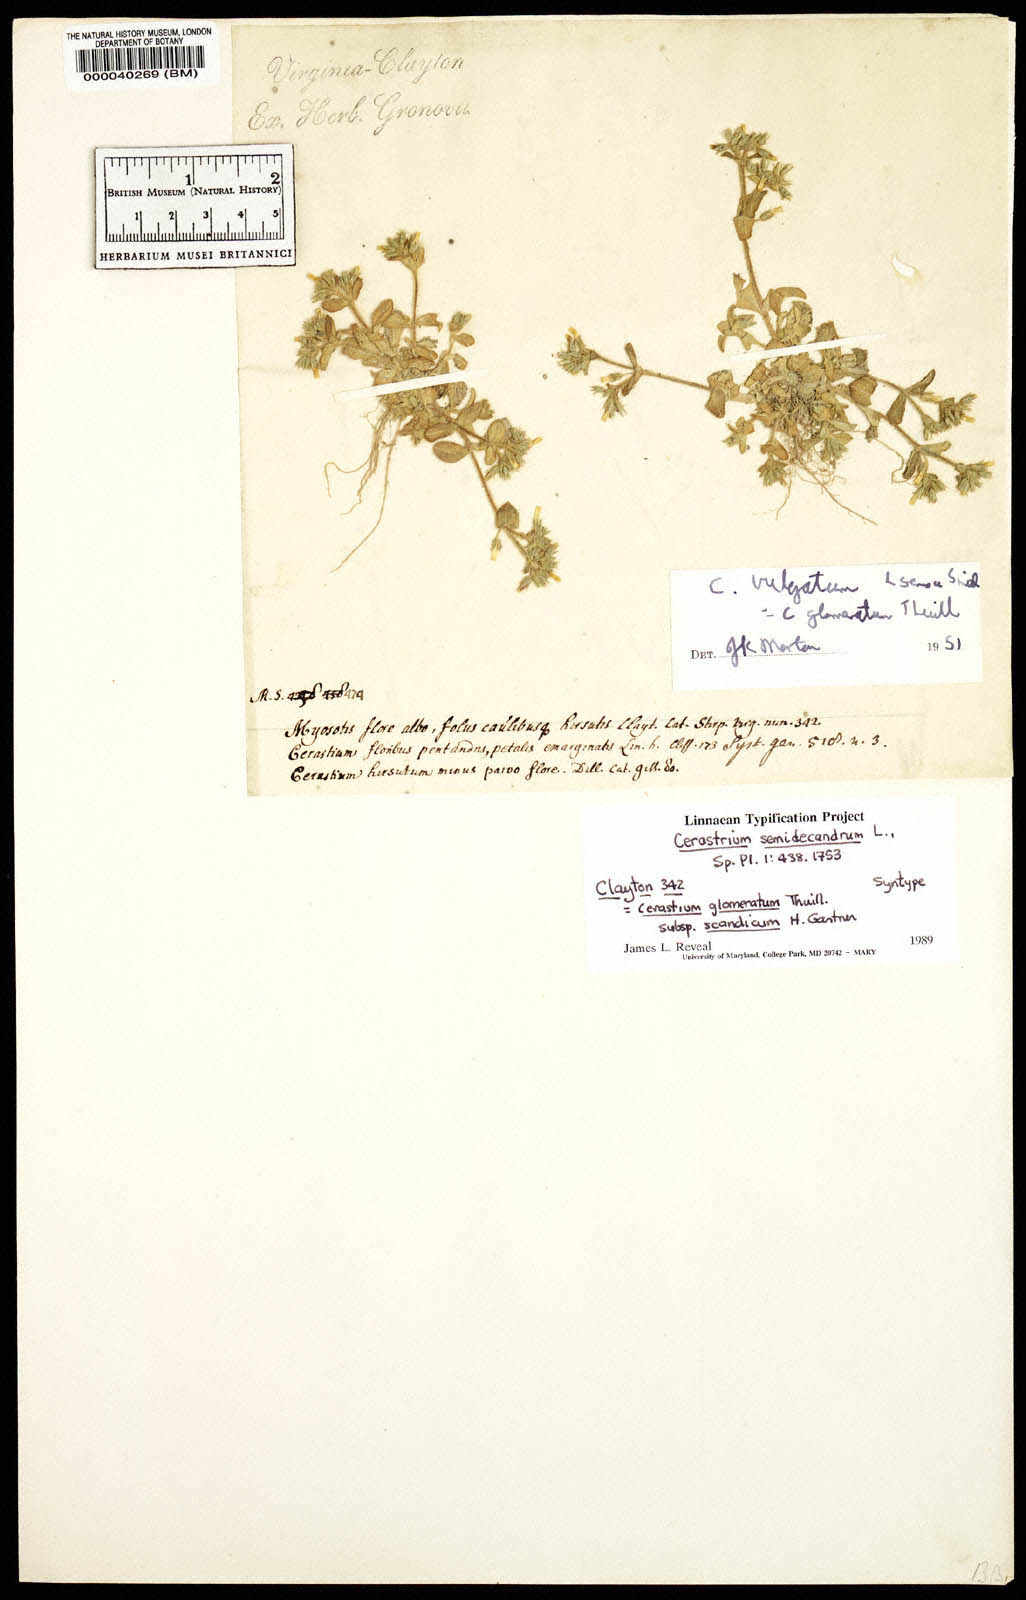 THE NATURAL HISTORY MUSEUM, LONDON
DEPARTMENT OF BOTANY
000040269 (BM)
Virginia - Clayton
Ex. Herb. Gronovii
1 2
BRITISH MUSEUM (NATURAL HISTORY)
1 2 3 4 5
HERBARIUM MUSEI BRITANNICI
C. vulgatum L sensu
= C glomeratum Thuill
DET. JK Morton 1951
M. S. 474
Myosotis flore albo, foliis caulibusq hirsutis Clayt. Cat. Stirp. Virg. num. 342
Cerastium floribus pentandris, petalis emarginatis Lin. h. Cliff. 173 Syst. gen. 518. n. 3.
Cerastium hirsutum minus parvo flore. Dill. Cat. giss. 80.
Linnaean Typification Project
Cerastrium semidecandrum L.,
Sp. Pl. 1: 438. 1753
Clayton 342 Syntype
= Cerastium glomeratum Thuill.
subsp. scandicum H. Gartner
James L. Reveal 1989
University of Maryland, College Park, MD 20742 – MARY